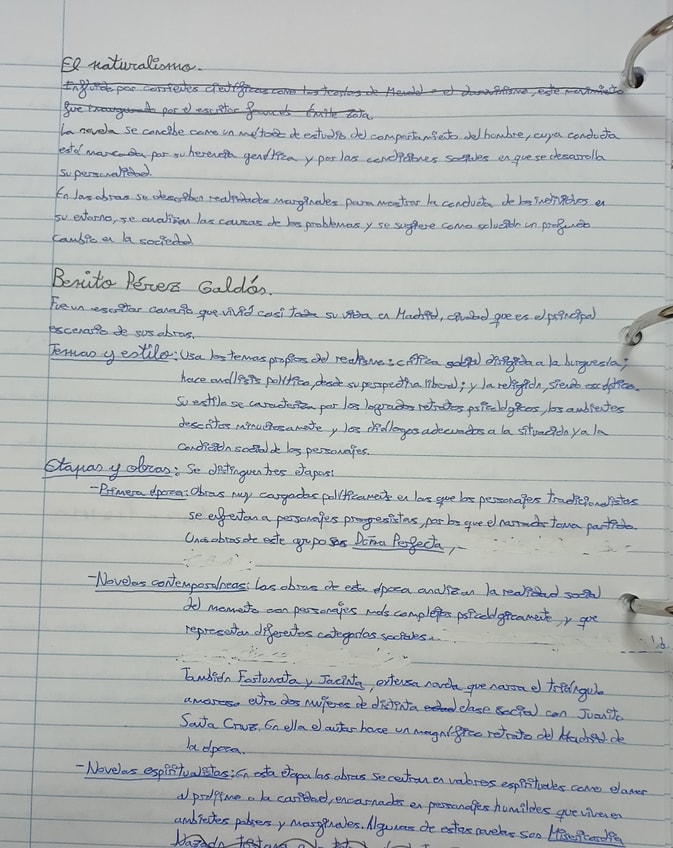 El naturalismo.
Influido por corrientes científicas como las teorías de Mendel o el darwinismo, este movimiento
fue inaugurado por el escritor francés Émile Zola.
La novela se concibe como un método de estudio del comportamiento del hombre, cuya conducta
está marcada por su herencia genética y por las condiciones sociales en que se desarrolla
su personalidad.
En las obras se describen realidades marginales para mostrar la conducta de los individuos en
su entorno, se analizan las causas de los problemas y se sugiere como solución un profundo
cambio en la sociedad
Benito Pérez Galdós.
Fue un escritor canario que vivió casi toda su vida en Madrid, ciudad que es el principal
escenario de sus obras.
Temas y estilo: Usa los temas propios del realismo: crítica social dirigida a la burguesía;
hace análisis político, desde su perspectiva liberal; y la religión, siendo escéptico.
Su estilo se caracteriza por los logrados retratos psicológicos, los ambientes
descritos minuciosamente y los diálogos adecuados a la situación y a la
condición social de los personajes.
Etapas y obras: Se distinguen tres etapas:
-Primera época: Obras muy cargadas políticamente en las que los personajes tradicionalistas
se enfrentan a personajes progresistas, por los que el narrador toma partido.
Una obras de este grupo son Doña Perfecta,
-Novelas contemporáneas: Las obras de esta época analizan la realidad social
del momento con personajes más complejos psicológicamente, y que
representan diferentes categorías sociales.
También Fortunata y Jacinta, extensa novela que narra el triángulo
amoroso entre dos mujeres de distinta clase social con Juanito
Santa Cruz. En ella el autor hace un magnífico retrato del Madrid de
la época.
-Novelas espiritualistas: En esta etapa las obras se centran en valores espirituales como el amor
al prójimo o la caridad, encarnados en personajes humildes que viven en
ambientes pobres y marginales. Algunas de estas novelas son Misericordia